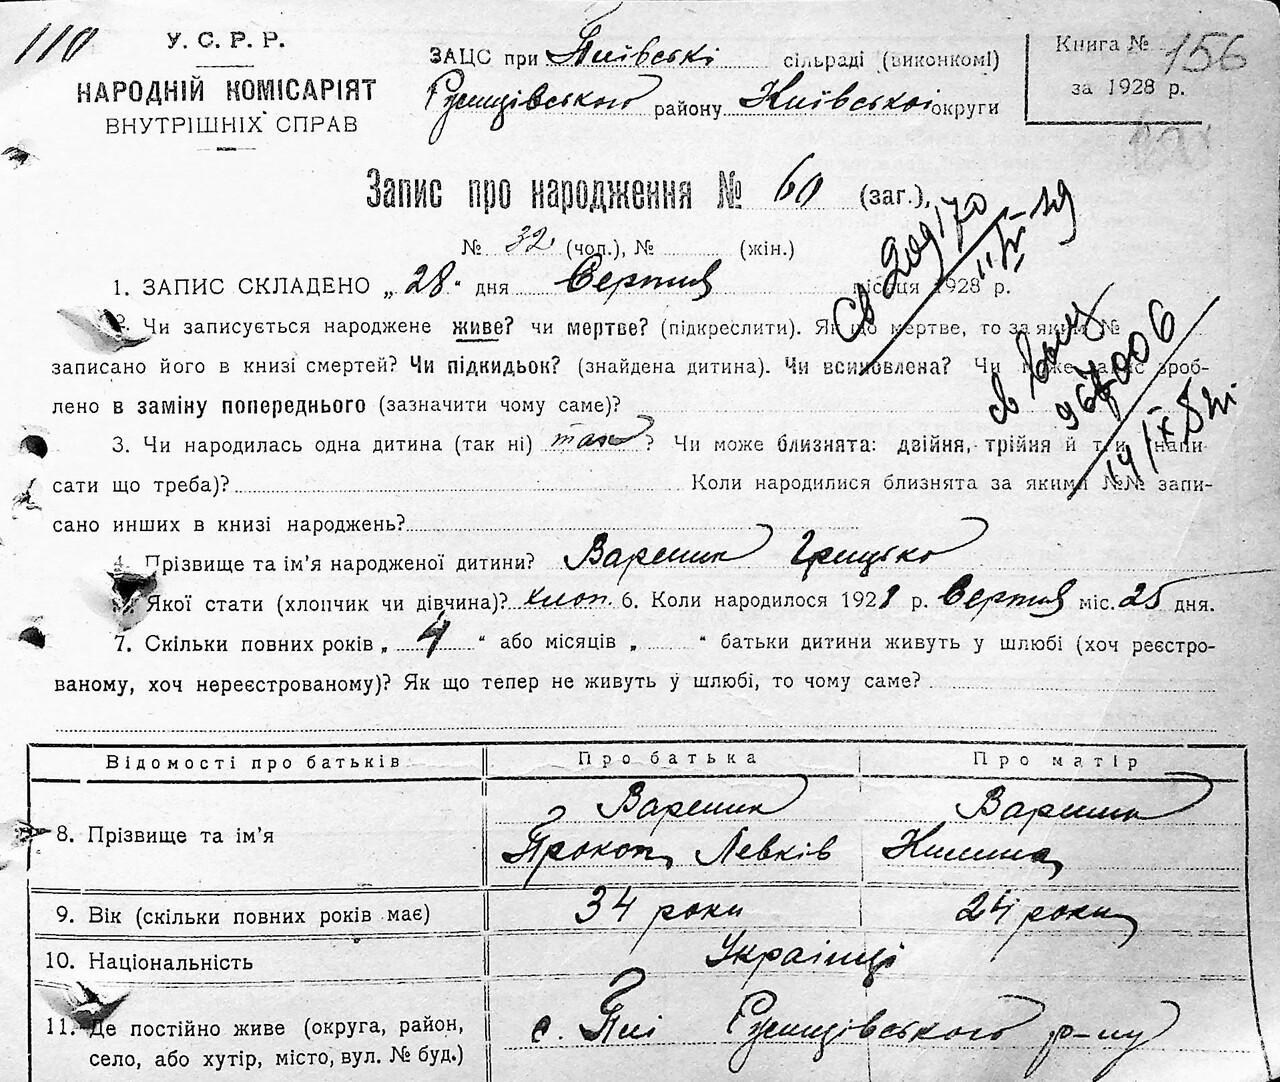 110
У. С. Р. Р.
НАРОДНІЙ КОМІСАРІЯТ
ВНУТРІШНІХ СПРАВ
ЗАЦС при Пиївські сільраді (виконкомі)
Ржищівського району Київської округи
Книга № 156
за 1928 р.
Запис про народження № 60 (заг.),
№ 32 (чол.), № (жін.)
св 209170
11/IV-29
1. ЗАПИС СКЛАДЕНО „28" дня Серпня місяця 1928 р.
2. Чи записується народжене живе? чи мертве? (підкреслити). Як що мертве, то за яким №
записано його в книзі смертей? Чи підкидьок? (знайдена дитина). Чи всиновлена? Чи може запис зроб-
лено в заміну попереднього (зазначити чому саме)?
св
967006
14/IX
3. Чи народилась одна дитина (так ні) так? Чи може близнята: двійня, трійня й т. и. (напи-
сати що треба)? Коли народилися близнята за якими №№ запи-
сано инших в книзі народжень?
4. Прізвище та ім'я народженої дитини? Варешик Грицько
5. Якої стати (хлопчик чи дівчина)? хлоп. 6. Коли народилося 1928 р. Серпня міс. 25 дня.
7. Скільки повних років „4" або місяців „ " батьки дитини живуть у шлюбі (хоч реєстро-
ваному, хоч нереєстрованому)? Як що тепер не живуть у шлюбі, то чому саме?
Відомості про батьків Про батька Про матір
8. Прізвище та ім'я Варешик Варешик
Прокоп Левків Килина
9. Вік (скільки повних років має) 34 роки 24 роки
10. Національність Українці
11. Де постійно живе (округа, район, с. Пиї Ржищівського р-ну
село, або хутір, місто, вул. № буд.)